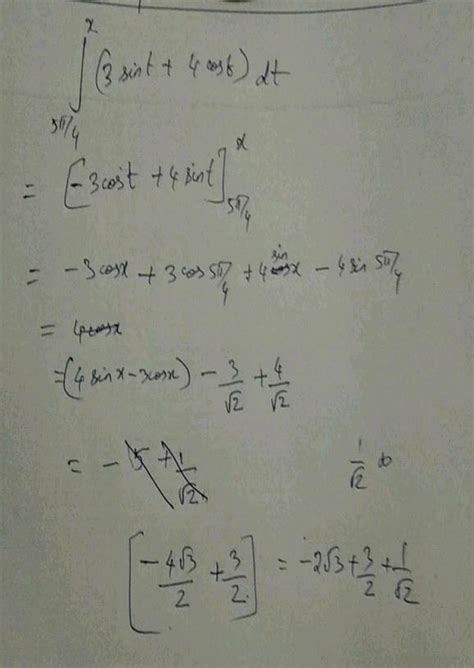 ∫_{5π/4}^{x} (3 sint + 4 cost) dt
= [-3cost + 4 sint]_{5π/4}^{x}
= -3cosx + 3cos 5π/4 + 4 sin x - 4 sin 5π/4
= 4cosx
= (4 sinx - 3cosx) - 3/√2 + 4/√2
= - 5 + 1/√2
1/√2
[-4√3/2 + 3/2] = -2√3 + 3/2 + 1/√2